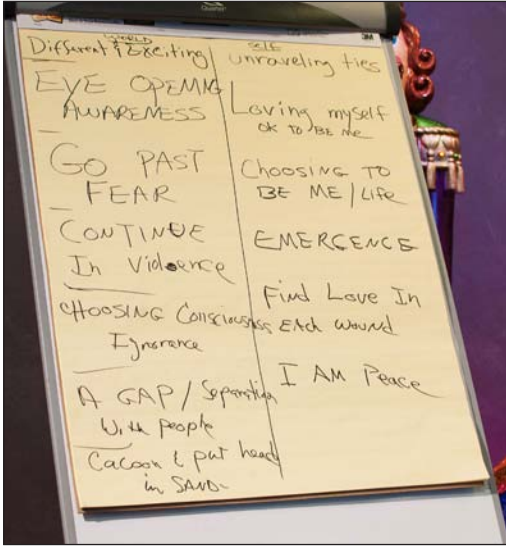 Quartet
3M
WORLD
Different & Exciting
EYE OPENING
AWARENESS
GO PAST
FEAR
CONTINUE
In Violence
CHOOSING Consciousness
Ignorance
A GAP / Separation
With people
Cacoon & put head
in SAND
SELF
unraveling ties
Loving myself
OK TO BE me
CHOOSING TO
BE ME / Life
EMERGENCE
Find Love In
EAch wound
I AM Peace